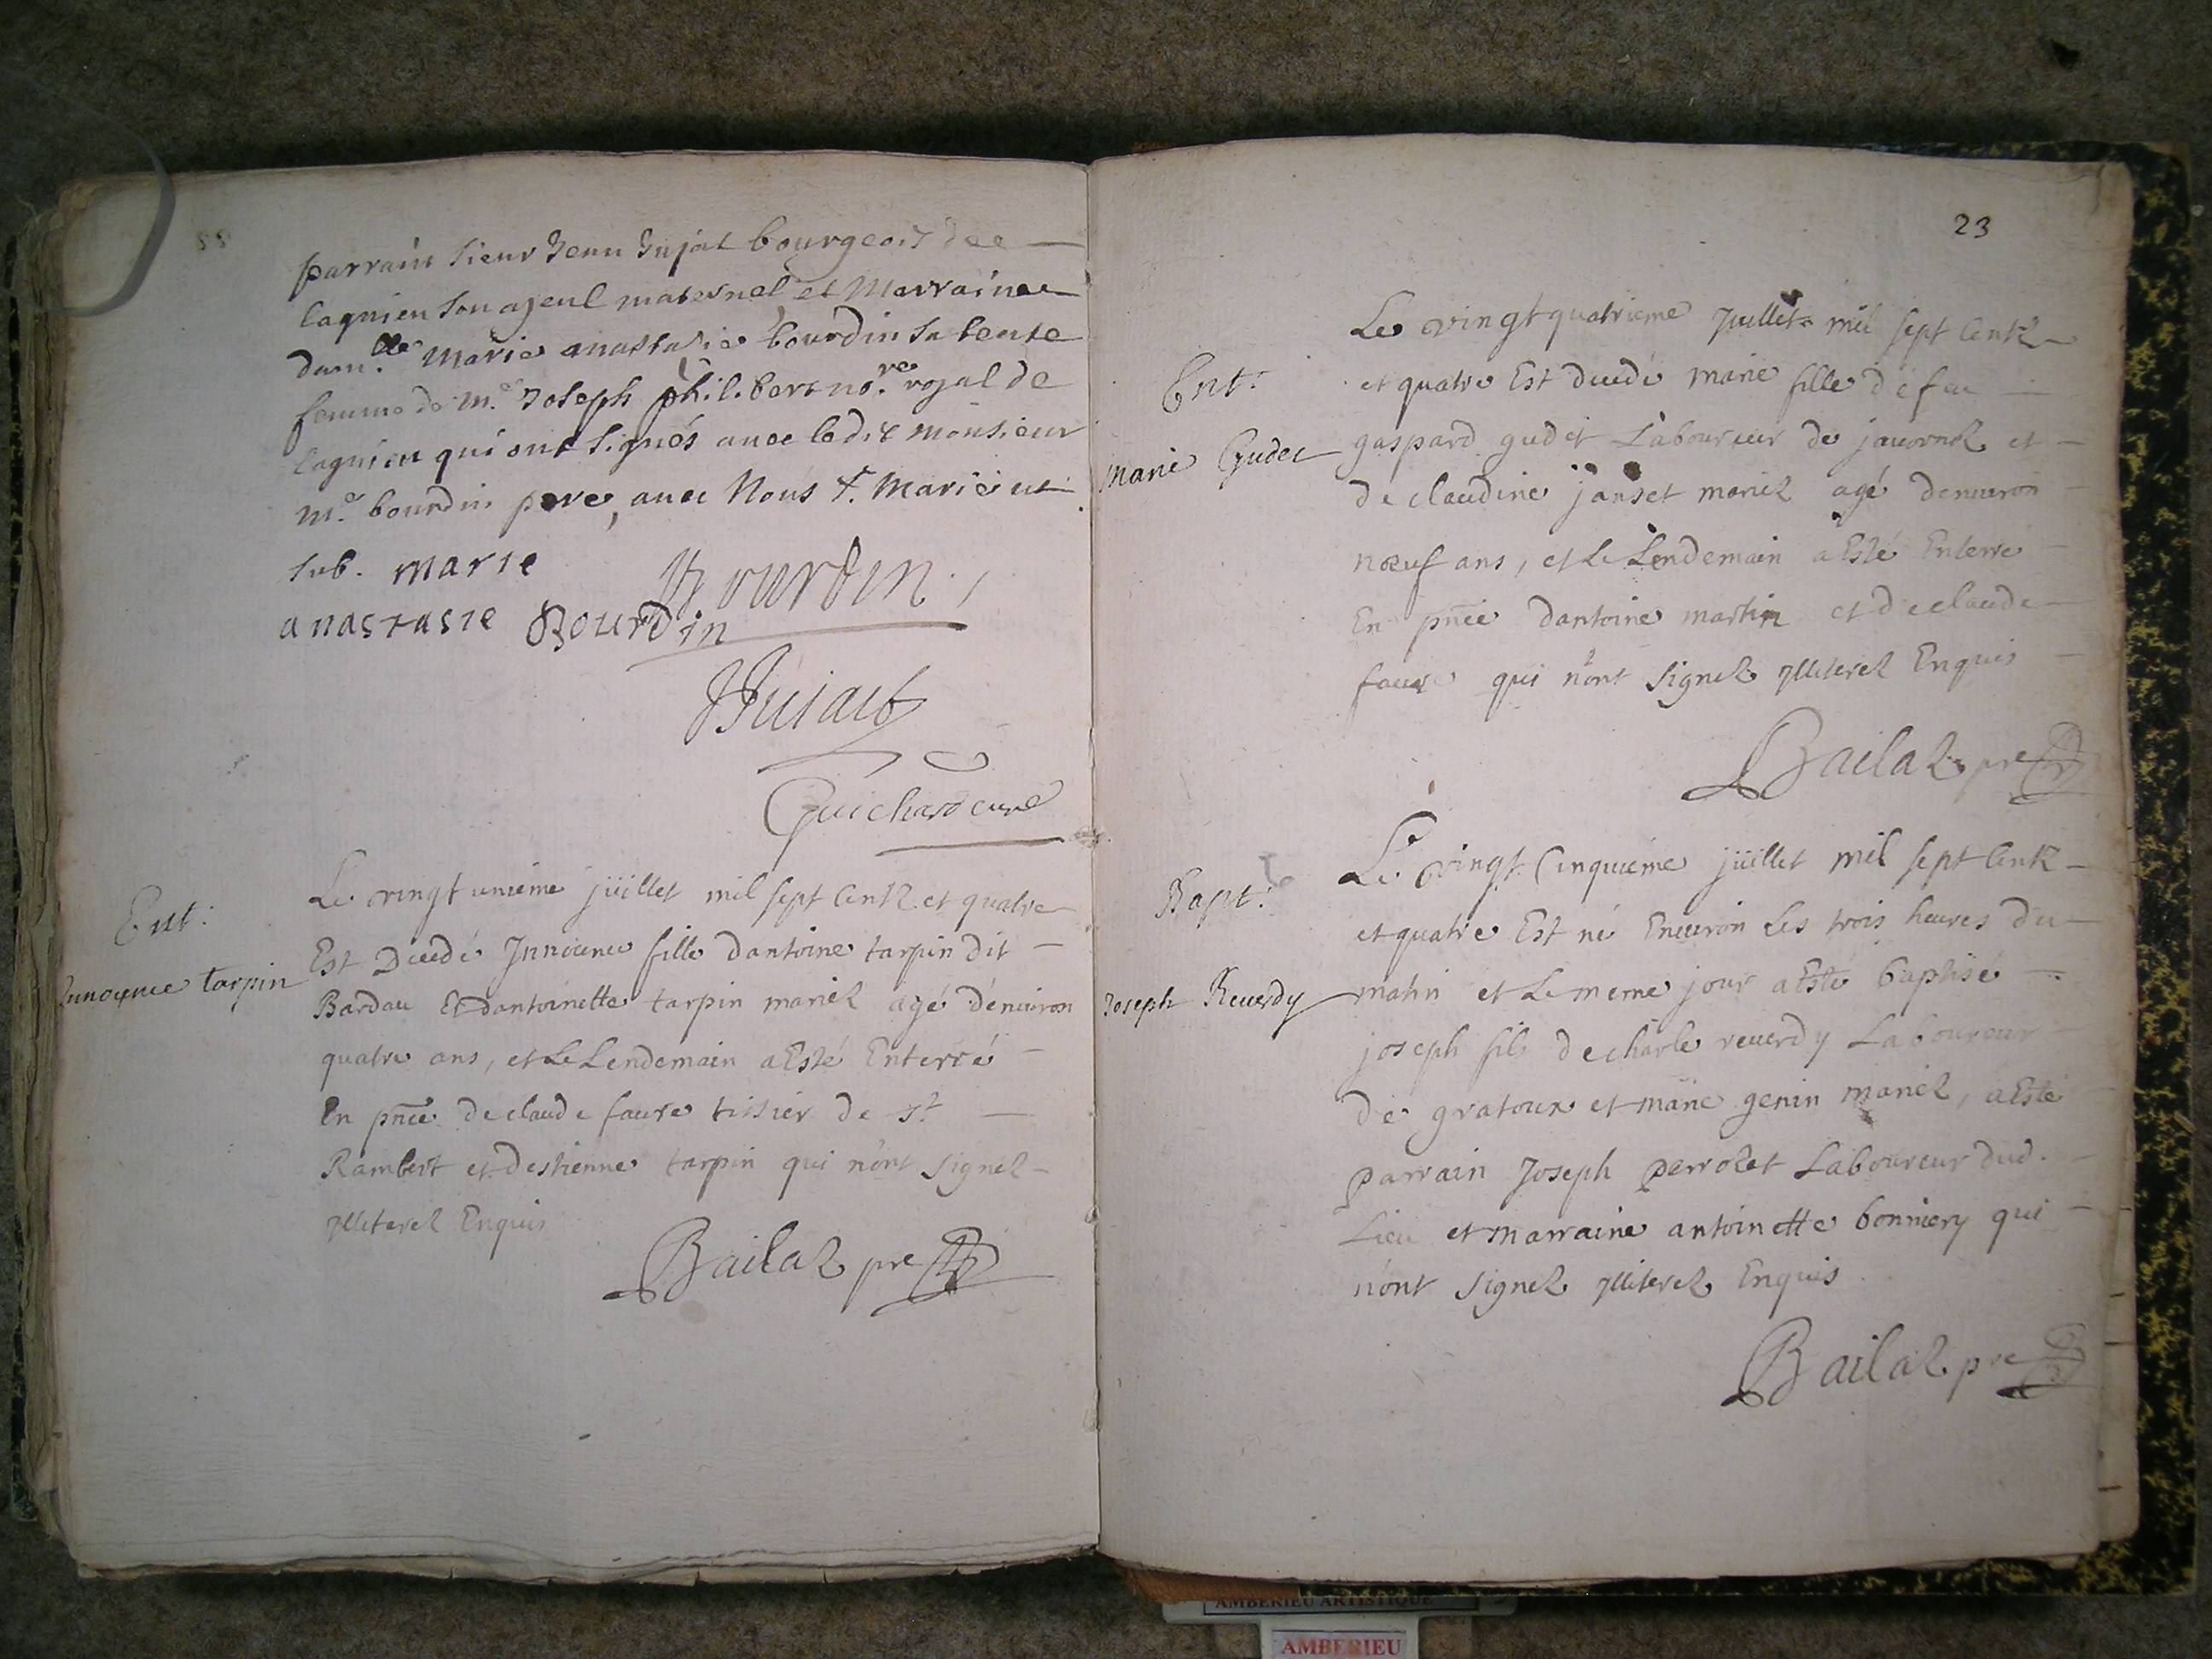 parrain sieur Jean hujat bourgeois de
lagnieu son ayeul maternel et Marraine
dam.lle Marie anastasie bourdin sa tente
femme de m.e Joseph philibert no.re royal de
lagnieu qui ont signés avec ledit monsieur
m.e bourdin pere, avec Nous
sub. marie
anastasie Bourdin
Bourdin
Hujat
Guichard curé
Ent:
Innocence tarpin
Le vingt unieme juillet mil sept Centz et quatre
Est Decedé Innocence fille dantoine tarpin dit
Bardau Et dantoinette tarpin mariez agé d'environ
quatre ans, et Le Lendemain a Esté Enterré
En pnce de claude faure tissier de St
Rambert et destienne tarpin qui n'ont signez
Illiterez Enquis
Bailaz pre
23
Ent:
Marie Gudet
Le vingt quatrieme Juillet mil sept Centz
et quatre Est decedé marie fille de feu
gaspard gudet Laboureur de javornoz et
de claudine janset mariez agé denviron
nœuf ans, et Le Lendemain a Esté Enterre
En pnce dantoine martin et de claude
faure qui n'ont signez Illiterez Enquis
Bailaz pre
Bapt:
Joseph Reverdy
Le vingt Cinquieme juillet mil sept Centz
et quatre Est né Environ Les trois heures du
matin et Le meme jour a Esté baptisé
joseph fils de charle reverdy Laboureur
de gratoux et marie genin mariez, a Esté
parrain Joseph perrozet Laboureur dud.
Lieu et marraine antoinette bonniery qui
n'ont signez Illiterez Enquis
Bailaz pre
AMBERIEU ARTISTIQUE
AMBERIEU